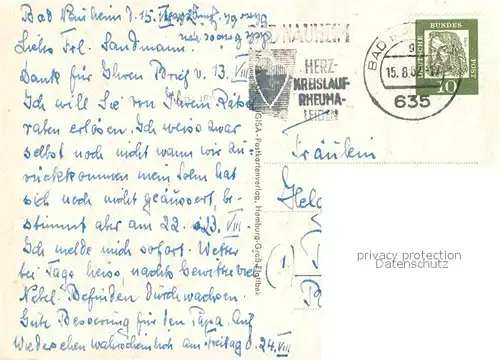 Bad Nauheim d. 15. VIII
Liebes Frl. Sandmann.
Dank für Ihren Brief v. 13. VIII
Ich will Sie von Ihrem Rätsel
raten erlösen. Ich weiss zwar
selbst noch nicht wann wir zu-
rückkommen mein Sohn hat
sich noch nicht geäussert, be-
stimmt aber am 22. o 23. VIII.
Ich melde mich sofort. Wetter
bei Tage heiss, nachts Gewitter bei
Nebel. Befinden durchwachsen.
Gute Besserung für den Papa. Auf
Wiedersehen wahrscheinlich am Freitag d. 24. VIII
BAD NAUHEIM
HERZ-
KREISLAUF-
RHEUMA-
LEIDEN
BAD
15.8.62-17
635
DEUTSCHE BUNDESPOST
10
GISA-Postkartenverlag, Hamburg-Groß-Flottbek
Fräulein
Helg
(1)
privacy protection
Datenschutz